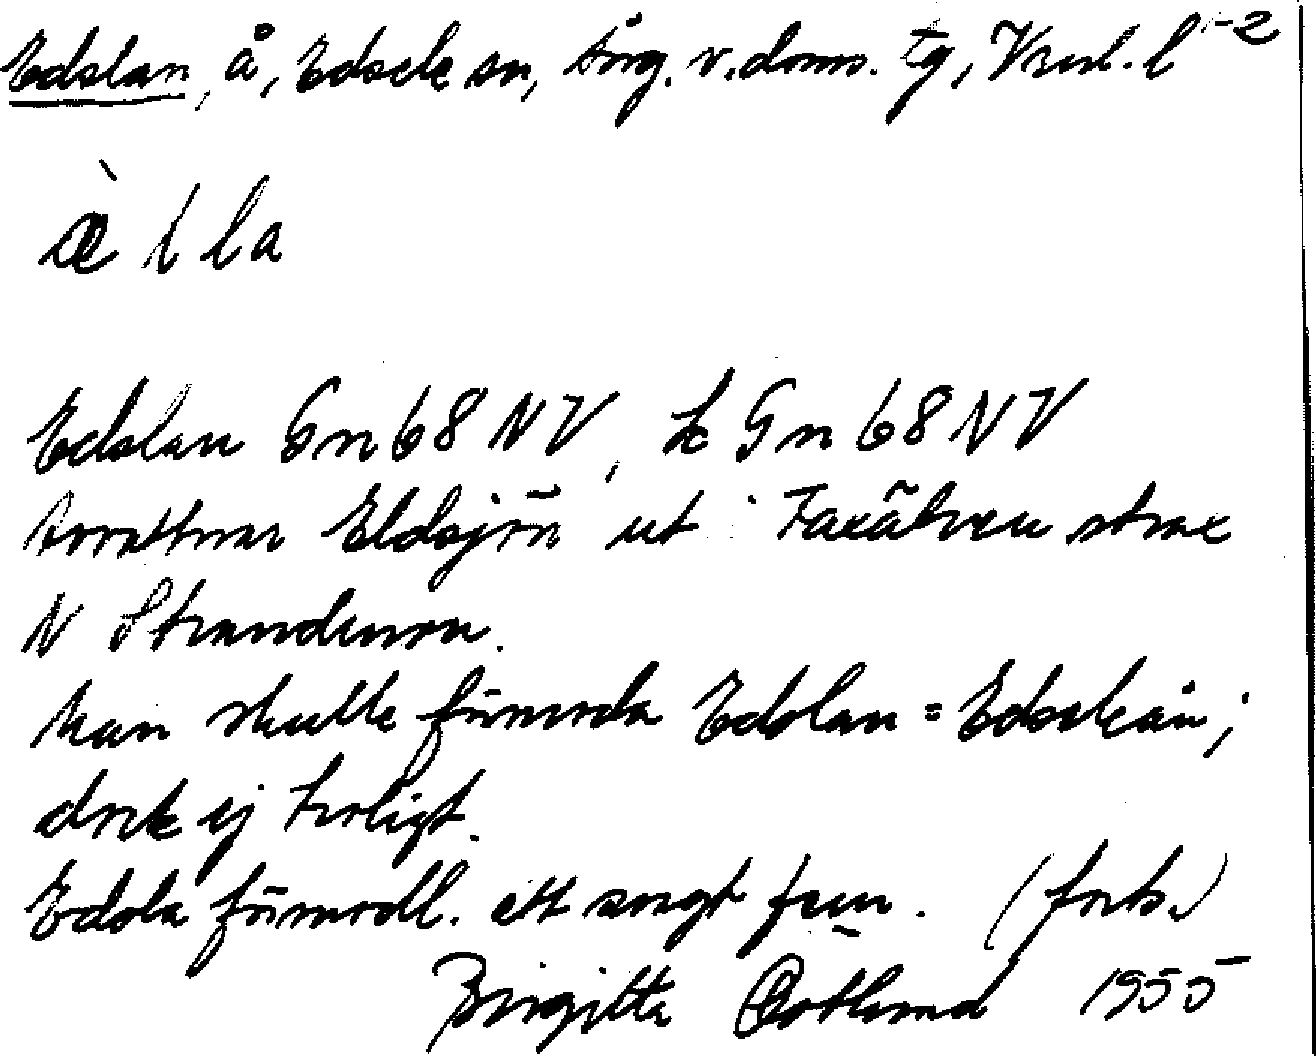 Edslan, å, Edsele sn, Ång. v. doms. tg, Vnl. l 1-2
æ̀ l la
Edslan Gn 68 NV, Lc Gn 68 NV
Avvattnar Eldsjön ut i Faxälven strax
N Strandmon.
Man skulle förmoda Edslan = Edseleån;
dock ej troligt.
Edsla förmodl. ett svagt fem. (forts.)
Birgitta Östlund 1955